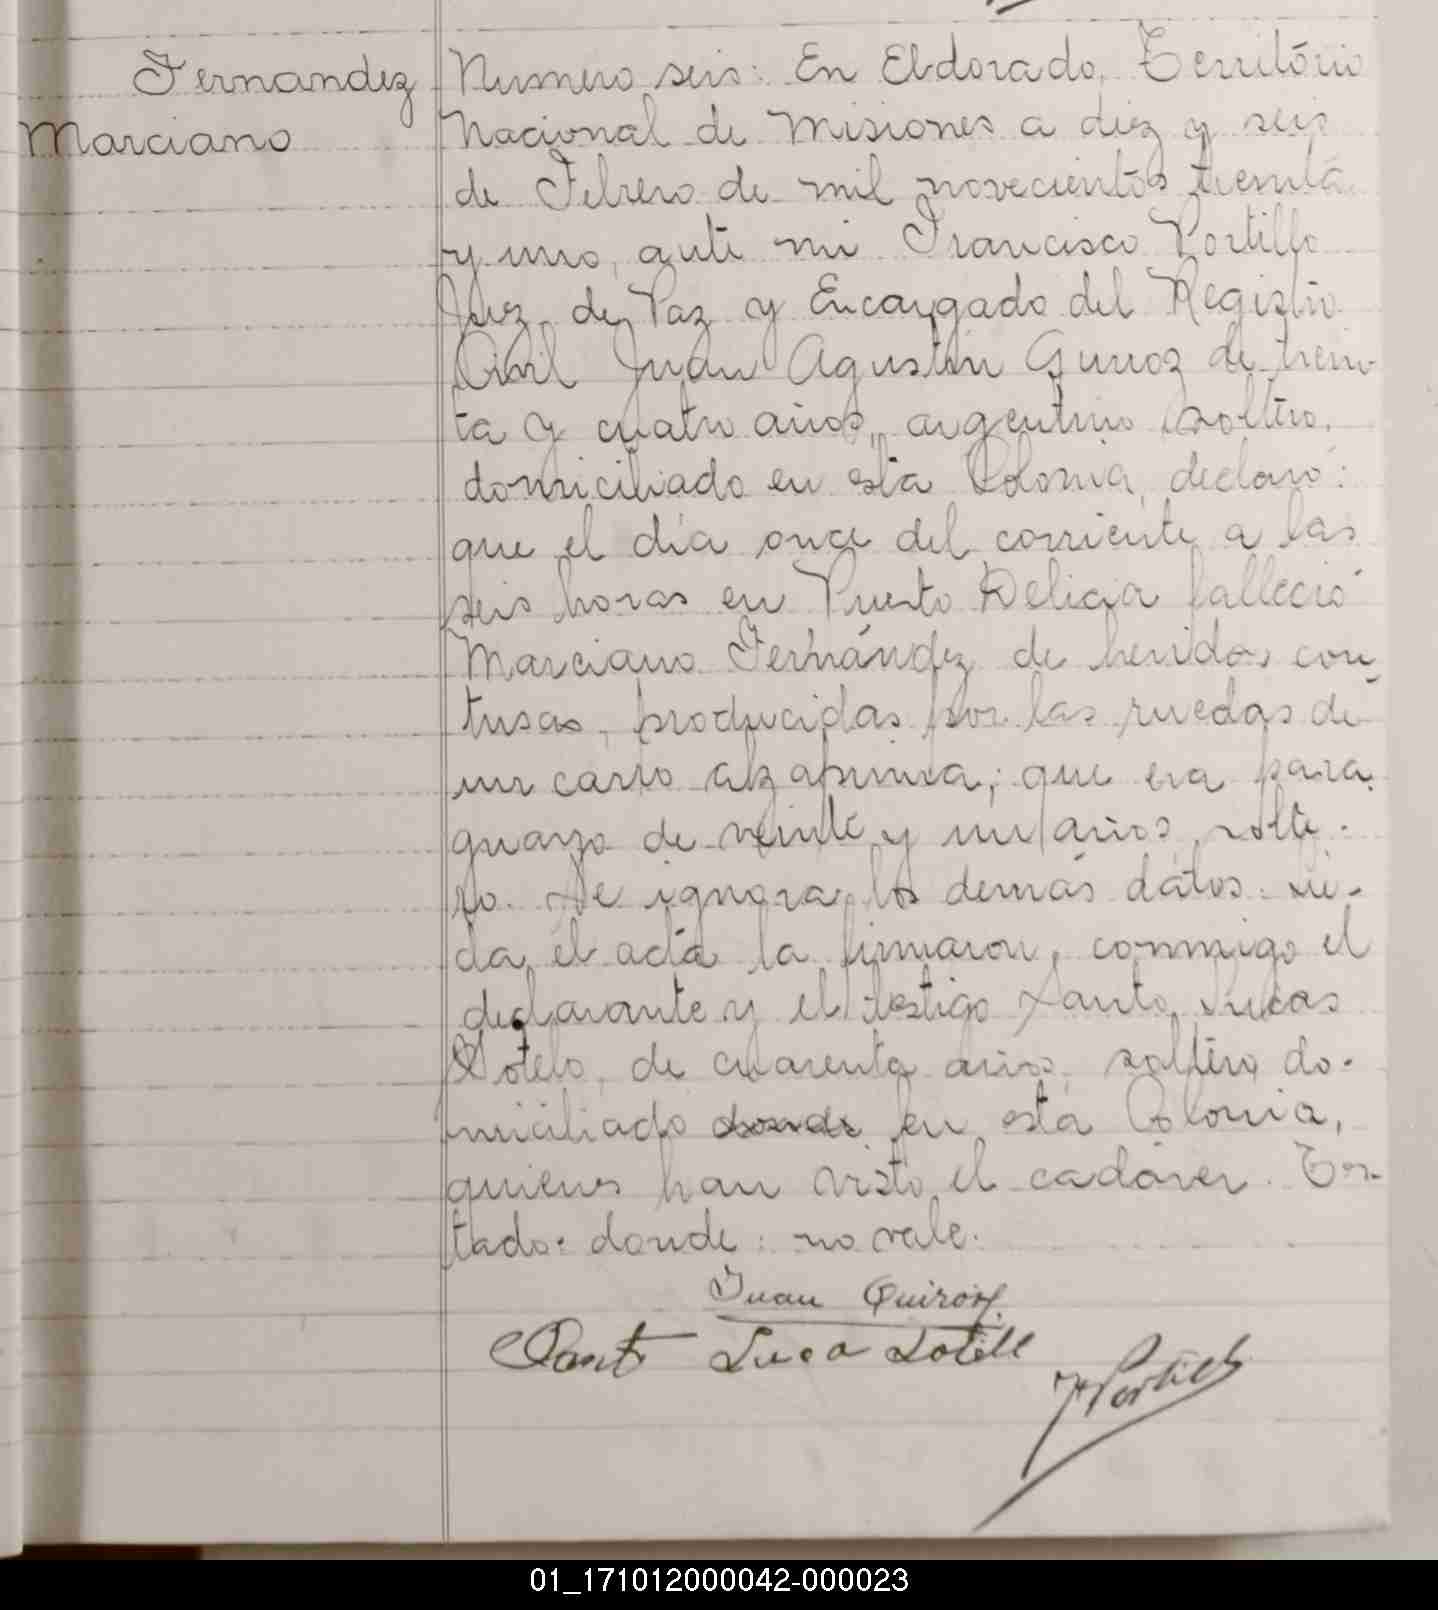 Fernandez
Marciano
Numero seis: En Eldorado, Território
Nacional de Misiones a diez y seis
de Febrero de mil novecientos treinta
y uno, ante mi Francisco Portillo
Juez de Paz y Encargado del Registro
Civil Juan Agustin de trein-
ta y cuatro años, argentino soltero,
domiciliado en esta Colonia, declaró:
que el día once del corriente a las
seis horas en Puerto Delicia falleció
Marciano Fernández de heridas con-
tusas, producidas por las ruedas de
un carro alzaprima; que era para-
guayo de veinte y un años solte-
ro. Se ignora los demás datos. Leí-
da el acta la firmaron, conmigo el
declarante y el testigo Santo Lucas
Sotelo, de cuarenta años, soltero do-
miciliado donde en esta Colonia,
quienes han visto el cadáver. Tes-
tado: donde: no vale.
Juan Quiroz
Santo Luca Sotell
FPortillo
01_171012000042-000023